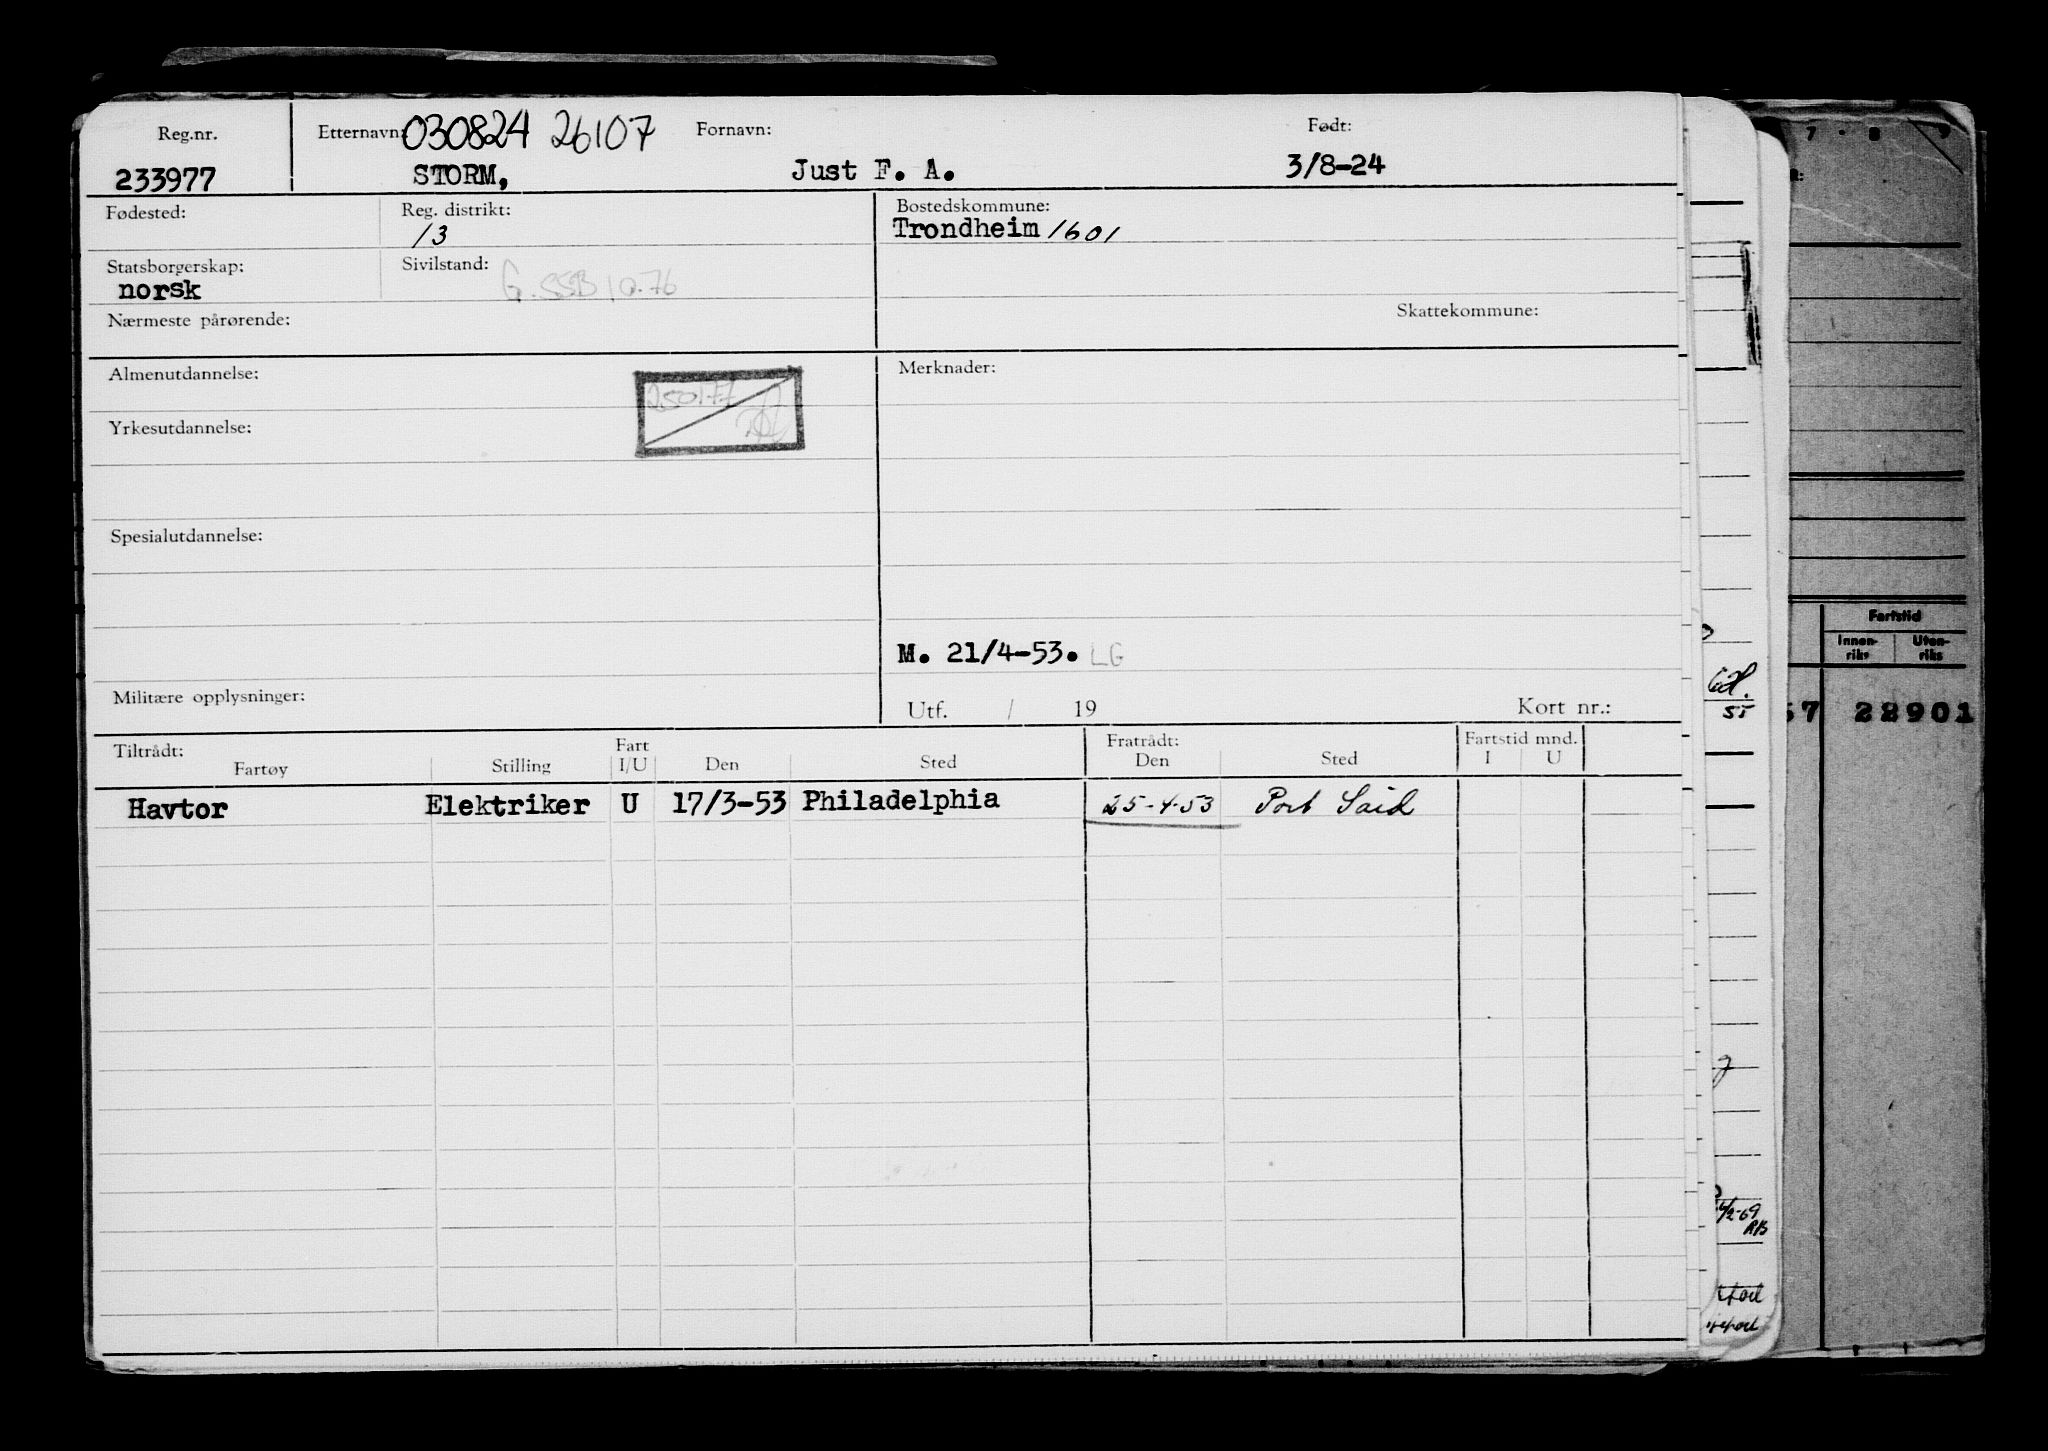 Reg.nr. Etternavn: 030824 26107 Fornavn: Født:
233977 STORM, Just F. A. 3/8-24
Fødested: Reg. distrikt: Bostedskommune:
13 Trondheim 1601
Statsborgerskap: Sivilstand:
norsk G. SSB 10.76
Nærmeste pårørende: Skattekommune:
Almenutdannelse: Merknader:
250177
Yrkesutdannelse:
Spesialutdannelse:
M. 21/4-53. LG
Militære opplysninger: Utf. / 19 Kort nr.:
Tiltrådt: Fratrådt: Fartstid mnd.
Fartøy Stilling Fart I/U Den Sted Den Sted I U
Havtor Elektriker U 17/3-53 Philadelphia 25-4-53 Port Said
7 8 9
Fartstid
Innen-riks Uten-riks
57 22901
55
RB